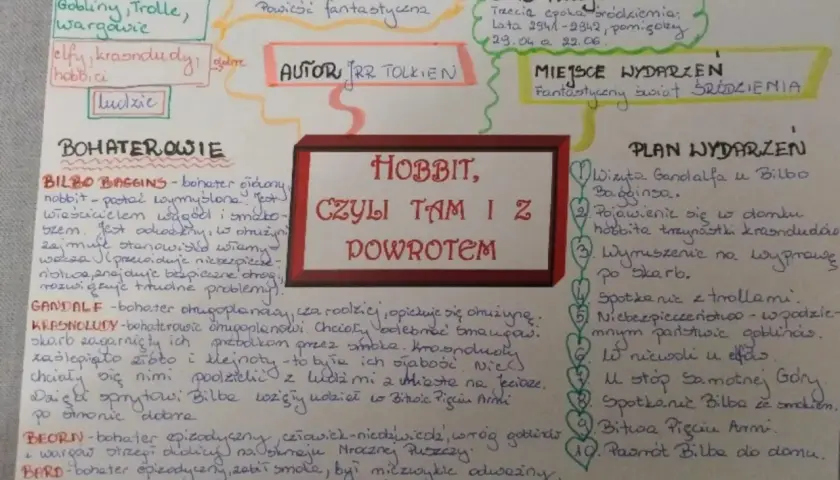 Gobliny, Trolle,
wargowie
elfy, krasnoludy,
hobbici
dobre
ludzie
Powieść fantastyczna
Trzecia epoka śródziemia:
Lata 2941-2942, pomiędzy
29.04 a 22.06.
AUTOR JRR TOLKIEN
MIEJSCE WYDARZEŃ
Fantastyczny świat ŚRÓDZIEMIA
HOBBIT,
CZYLI TAM I Z
POWROTEM
BOHATEROWIE
BILBO BAGGINS - bohater główny,
hobbit - postać wymyślona. Jest
wielbicielem wygód i smako-
szem. Jest odważny, w drużynie
zajmuje stanowisko włamy-
wacza (przewiduje niebezpieczeń-
stwa, znajduje bezpieczne drogi,
rozwiązuje trudne problemy).
GANDALF - bohater drugoplanowy, czarodziej, opiekuje się drużyną.
KRASNOLUDY - bohaterowie drugoplanowi chciały odebrać Smaugowi
skarb zagarnięty ich przodkom przez smoka. Krasnoludy
zaślepiało złoto i klejnoty - to była ich słabość. Nie
chciały się nimi podzielić z ludźmi z Miasta na Jeziorze.
Dzięki sprytowi Bilba wzięły udział w Bitwie Pięciu Armii
po stronie dobra
BEORN - bohater epizodyczny, człowiek-niedźwiedź, wróg goblinów
i wargów strzegł okolicy na skraju Mrocznej Puszczy.
BARD - bohater epizodyczny, zabił smoka, był niezwykle odważny,
PLAN WYDARZEŃ
1 Wizyta Gandalfa u Bilbo
Bagginsa.
2 Pojawienie się w domku
hobbita trzynastki krasnoludów
3 Wyruszenie na wyprawę
po skarb.
4 Spotkanie z trollami.
5 Niebezpieczeństwo - w podzie-
mnym państwie goblinów.
6 W niewoli u elfów.
7 U stóp Samotnej Góry
8 Spotkanie Bilba ze smokiem.
9 Bitwa Pięciu Armi.
10 Powrót Bilba do domu.